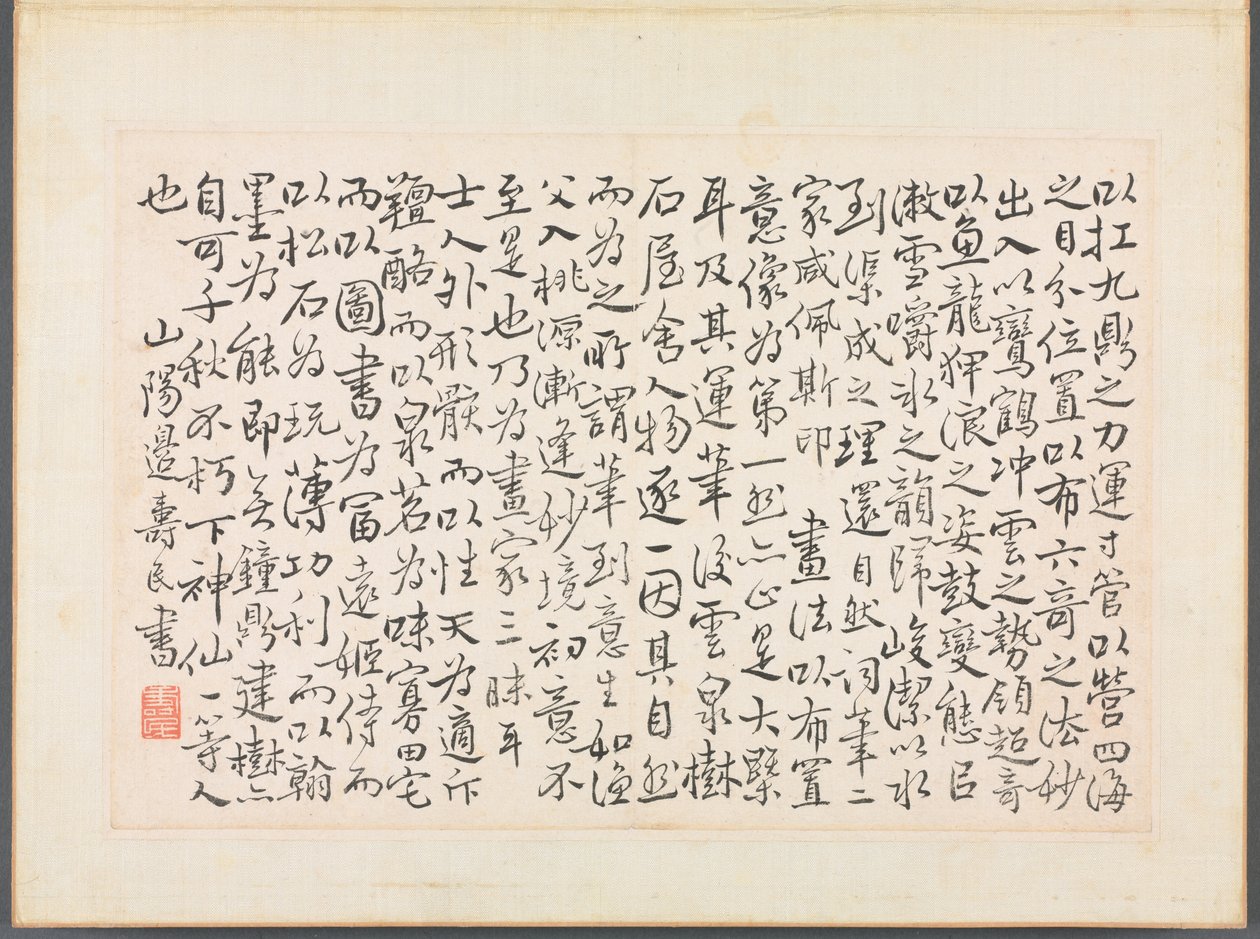 以扛九鼎之力運寸管以營四海
之目分位置以布六奇之法妙
出入以鸞鶴冲雲之勢領超奇
以魚龍狎浪之姿鼓變態㠯
漱雪嚼冰之韻歸峻潔以水
到渠成之理還自然詞筆二
家咸佩斯印 畫法以布置
意像為第一然亦止是大槩
耳及其運筆後雲泉樹
石屋舍人物逐一因其自然
而為之所謂筆到意生如漁
父入桃源漸逢妙境初意不
至是也乃為畫家三昧耳
士人外形骸而以性天為適斥
羶酪而以泉茗為味寡田宅
而以圖書為富遠姬侍而
以松石為玩薄功利而以翰
墨為能即無鐘鼎建樹亦
自可千秋不朽下神仙一等人
也 山陽邊壽民書
壽民